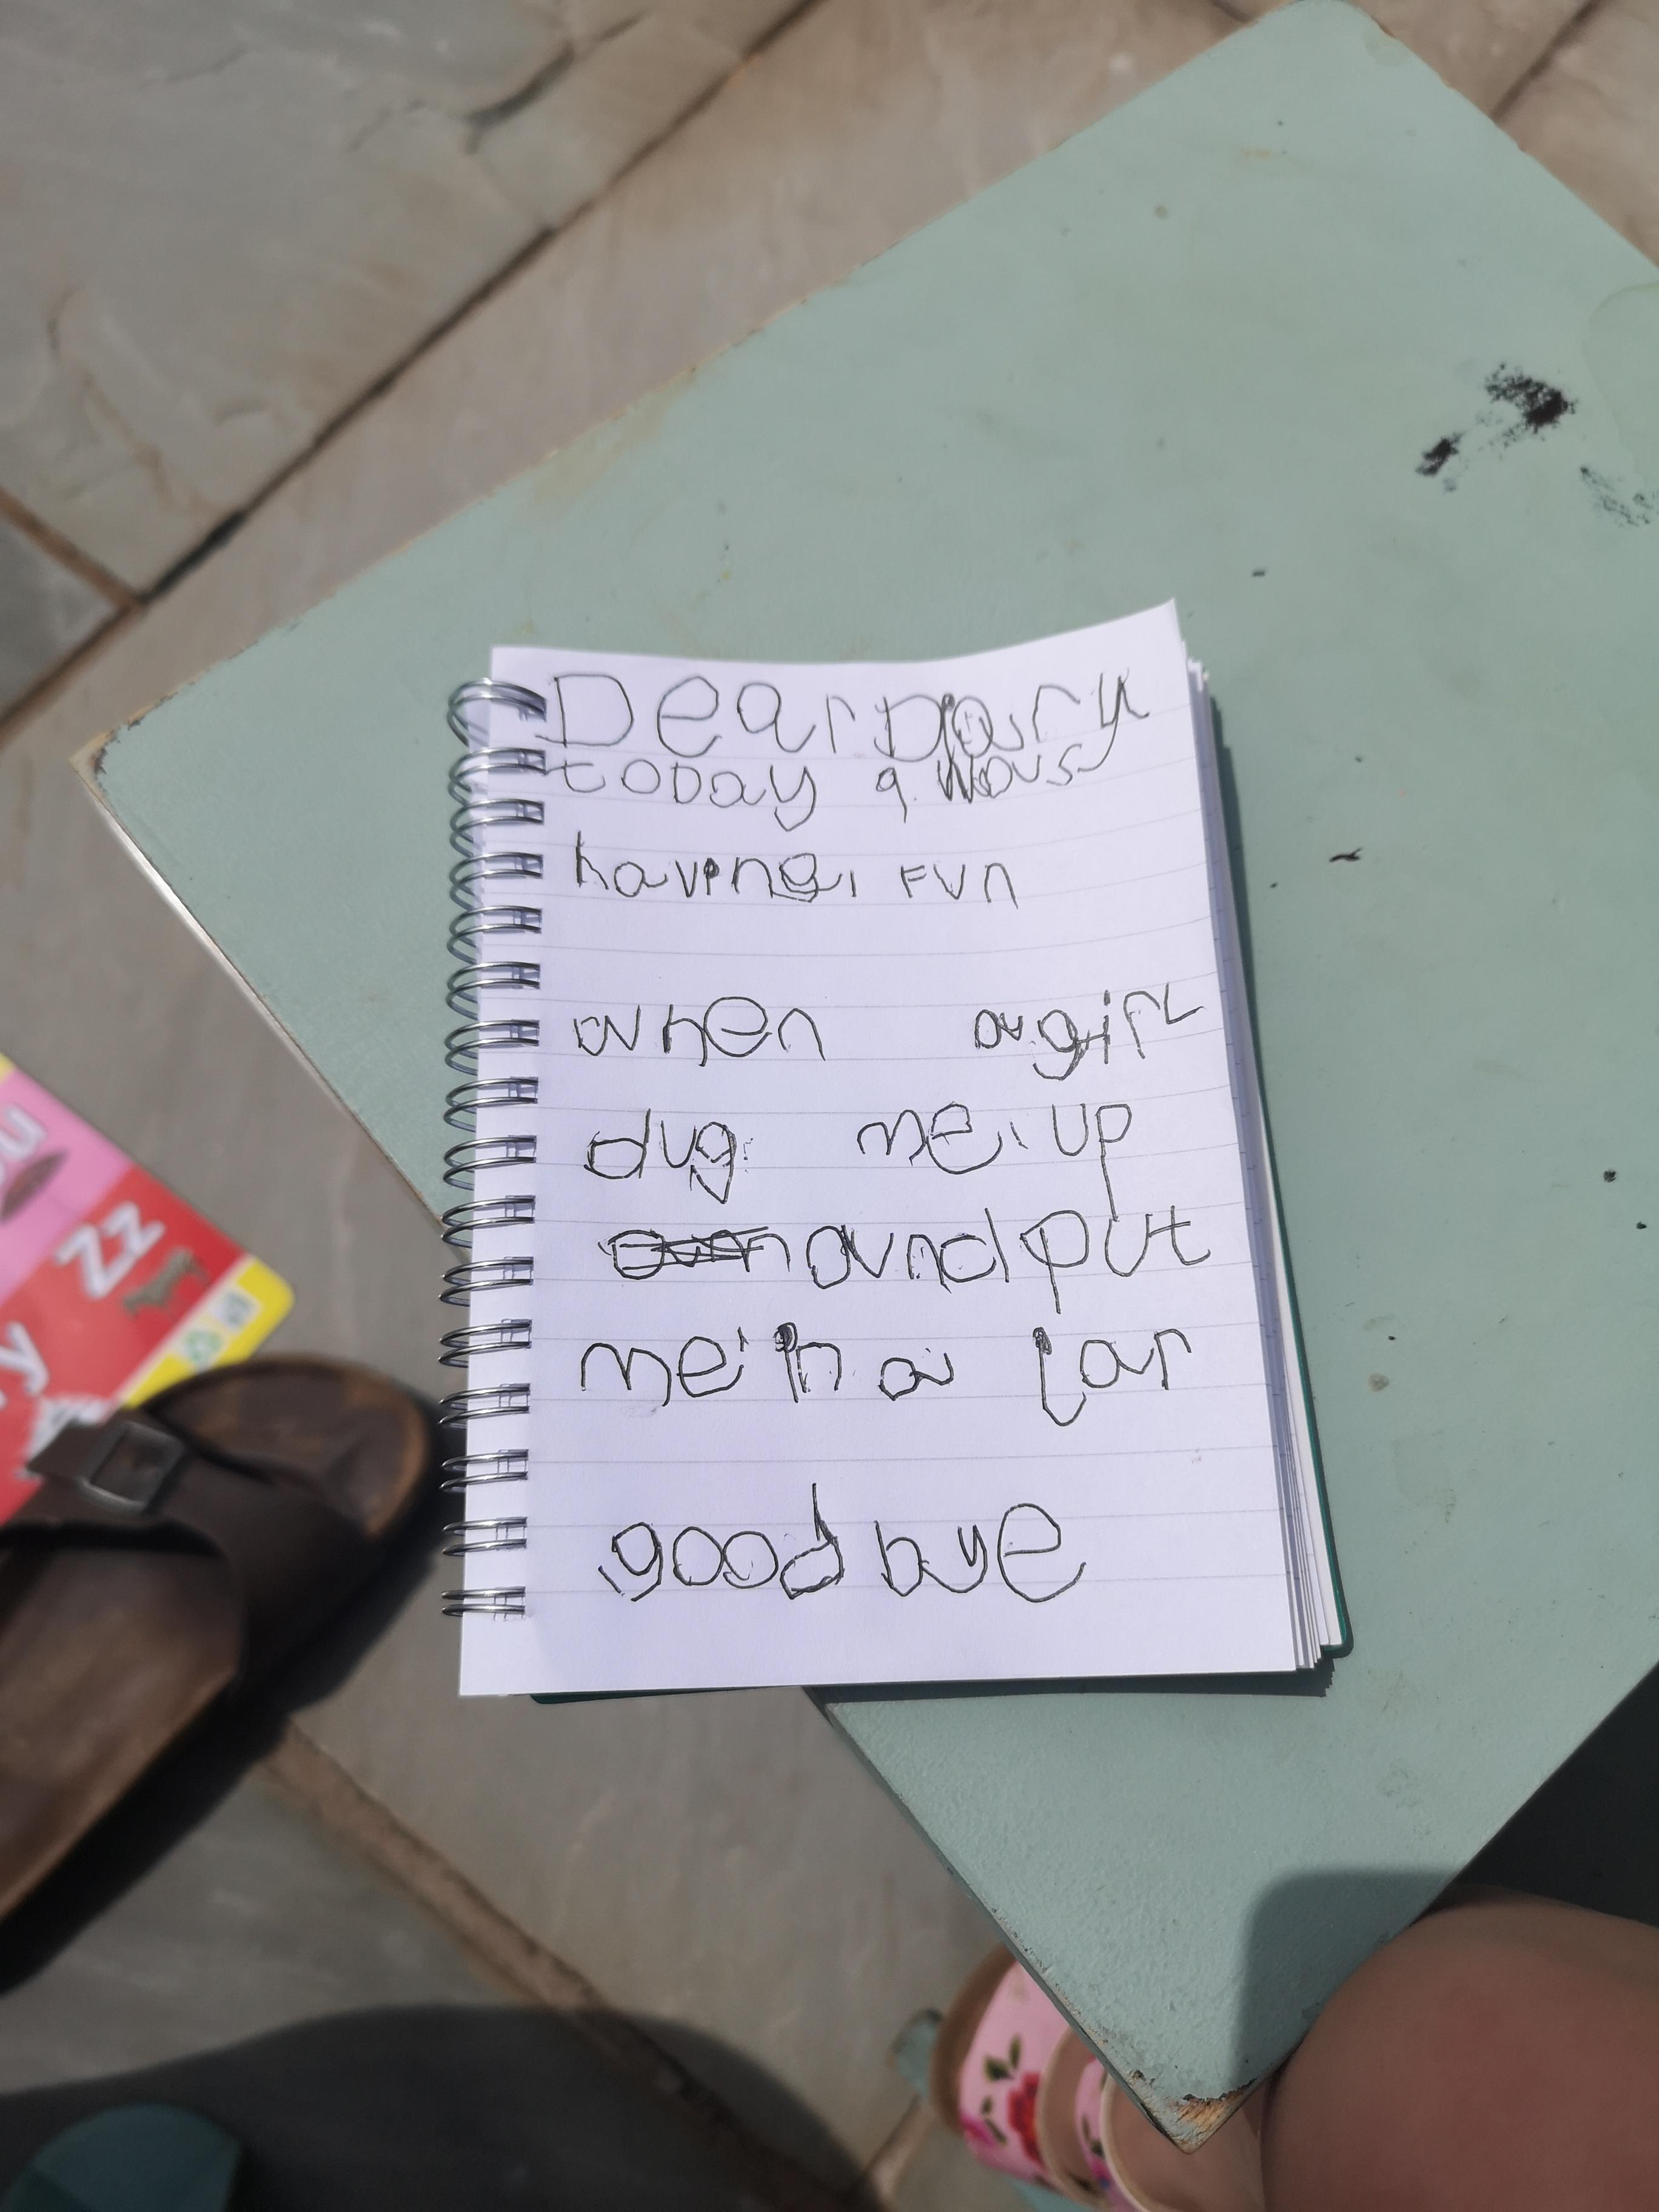 Dear Diary
today I was
having fun
when a girl
dug me up
and put
me in a jar
good bye
ou
Zz
y